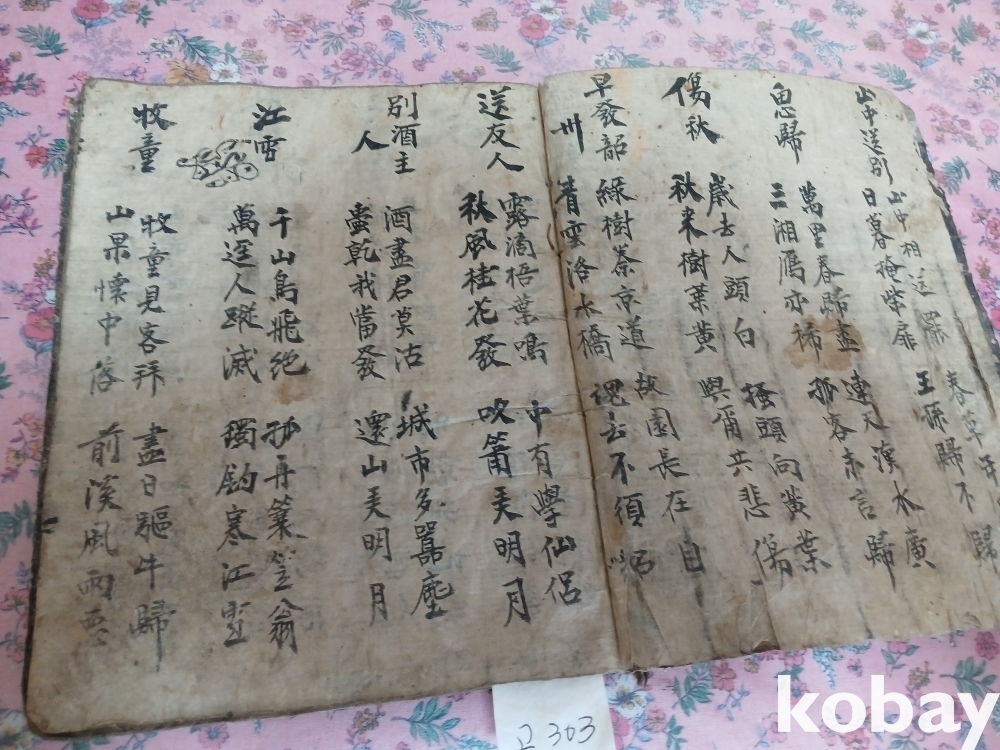 山中送別
山中相送罷 春草年
日暮掩柴扉 王孫歸不歸
思歸
萬里春歸盡 連天漢水廣
三湘鴈亦稀 孤客未言歸
傷秋
歲去人頭白 搔頭向黃葉
秋來樹葉黃 與爾共悲傷
早發韶州
綠樹秦京道 故園長在目
青雲洛水橋 魂去不須招
送友人
露滴梧葉鳴 中有學仙侶
秋風桂花發 吹簫弄明月
別酒主人
酒盡君莫沽 城市多囂塵
壺乾我當發 還山弄明月
江雪
千山鳥飛絕 孤舟簑笠翁
萬逕人蹤滅 獨釣寒江雪
牧童
牧童見客拜 盡日驅牛歸
山果懷中落 前溪風雨惡
고303
kobay